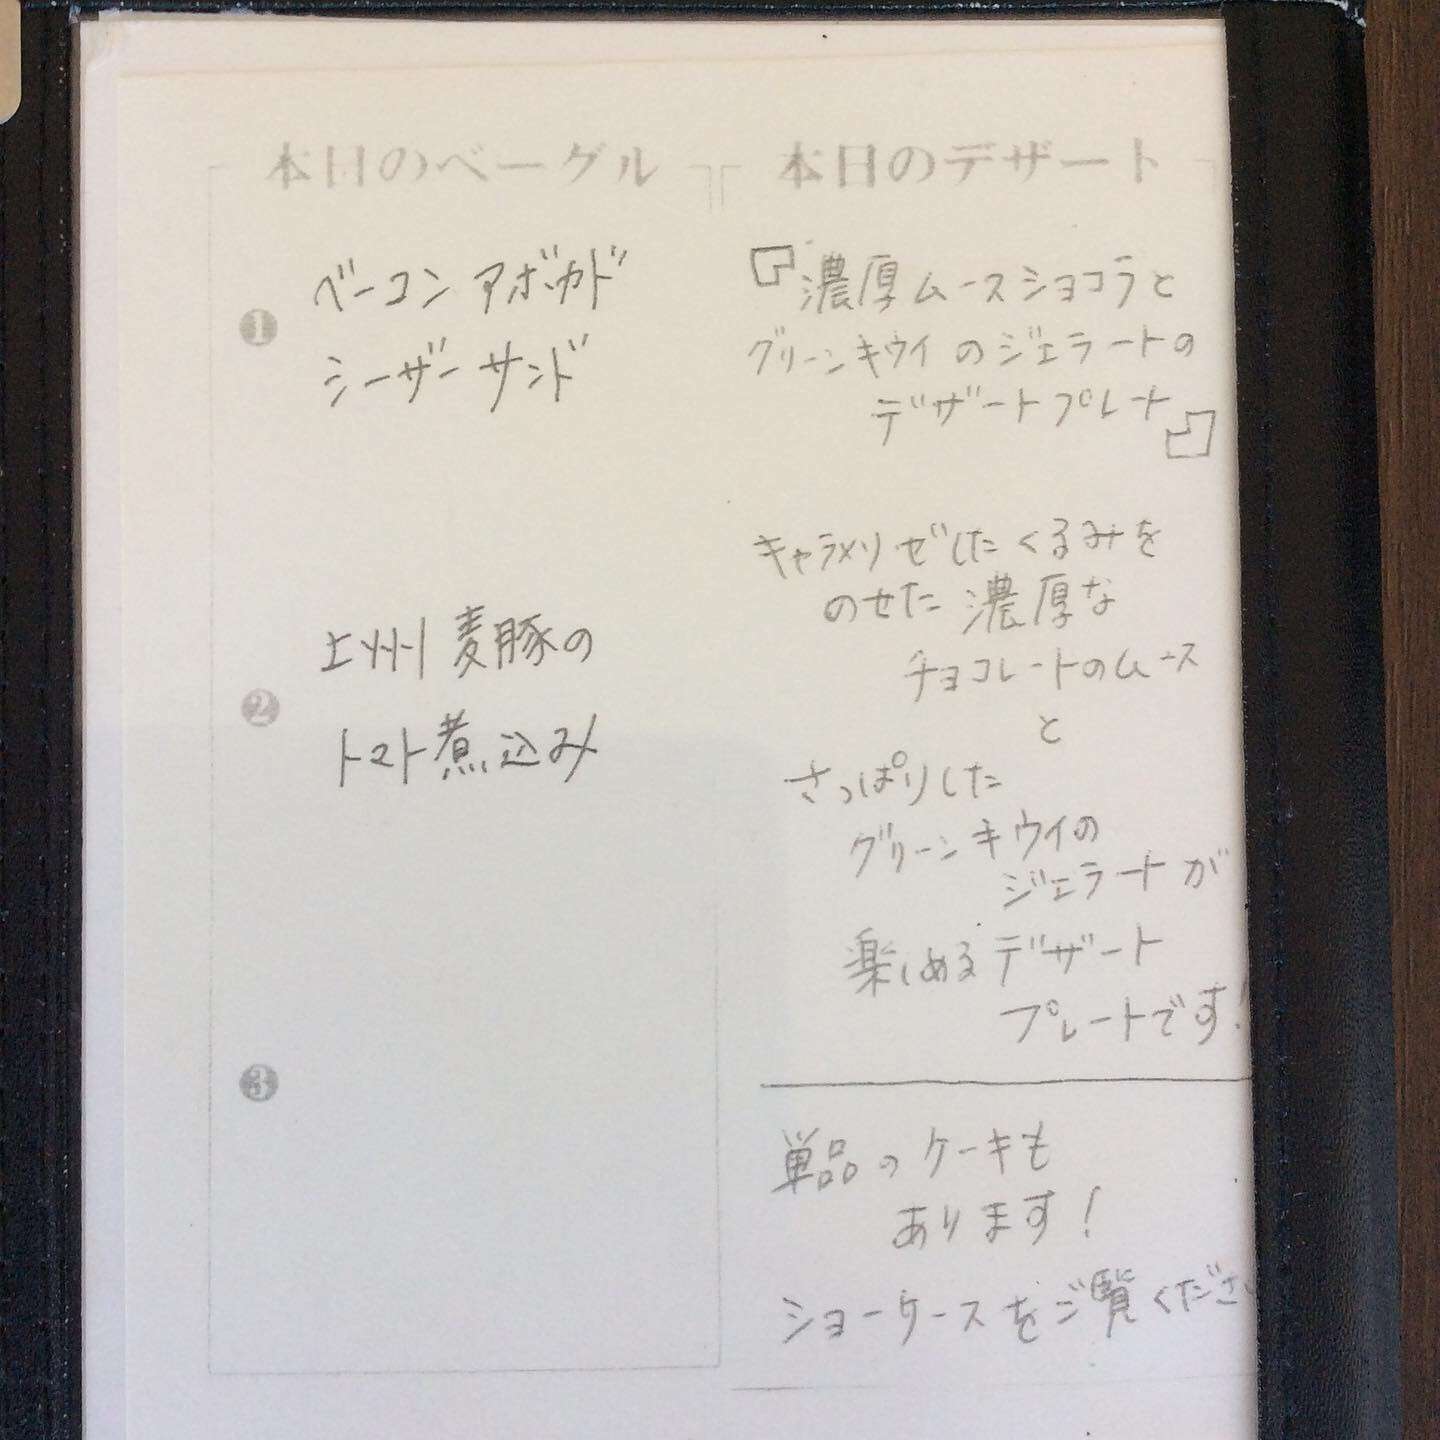 本日のベーグル
❶
ベーコン アボカド
シーザー サンド
❷
上州 麦豚の
トマト煮込み
❸
本日のデザート
『濃厚ムースショコラと
グリーンキウイのジェラートの
デザートプレート』
キャラメリゼしたくるみを
のせた濃厚な
チョコレートのムース
と
さっぱりした
グリーンキウイの
ジェラートが
楽しめるデザート
プレートです!
単品のケーキも
あります!
ショーケースをご覧ください